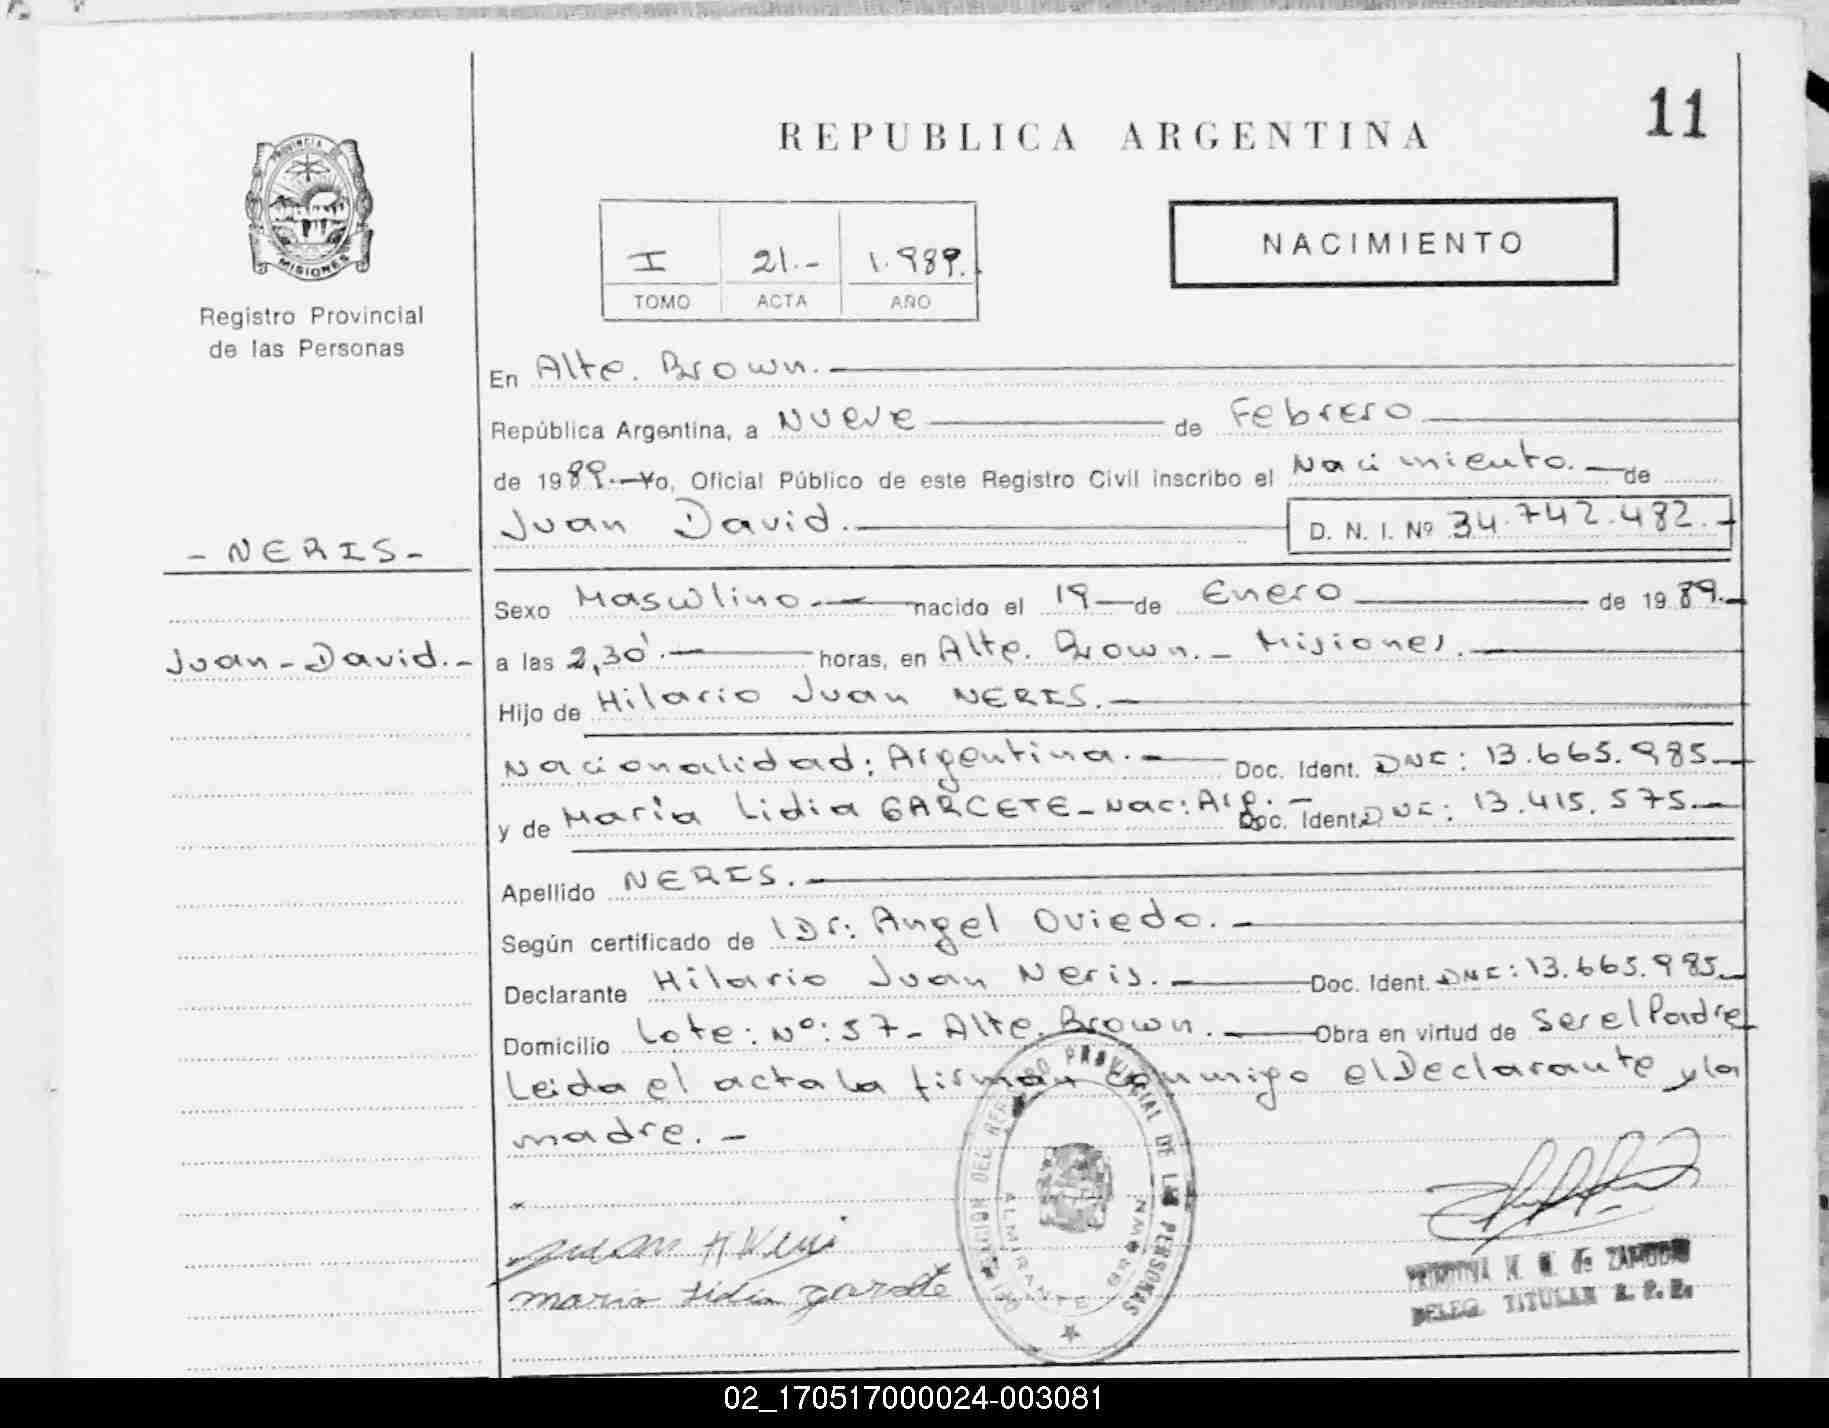 11
REPUBLICA ARGENTINA
PROVINCIA
MISIONES
Registro Provincial
de las Personas
I 21.- 1.989.
TOMO ACTA AÑO
NACIMIENTO
En Alte. Brown.
República Argentina, a Nueve de Febrero
de 1989.- Yo, Oficial Público de este Registro Civil inscribo el Nacimiento. de
Juan David. D. N. I. Nº 34.742.482.-
- NERIS -
Sexo Masculino.- nacido el 19 de Enero de 1989.-
Juan - David.-
a las 2,30'. horas, en Alte. Brown.- Misiones.
Hijo de Hilario Juan NERIS.
Nacionalidad: Argentina.- Doc. Ident. DNI: 13.665.985
y de María Lidia GARCETE - Nac: Arg.- Doc. Ident. DNI: 13.415.575.-
Apellido NERIS.
Según certificado de Dr: Angel Oviedo.-
Declarante Hilario Juan Neris. Doc. Ident. DNI: 13.665.985
Domicilio Lote: Nº: 57 - Alte. Brown. Obra en virtud de Ser el Padre
Leida el acta la firman conmigo el Declarante y la
madre.-
DELEGACION DEL REGISTRO PROVINCIAL DE LAS PERSONAS
ALMIRANTE BROWN
maria lidia garsete
de ZAMUDIO
DELEG. TITULAR R. P. P.
02_170517000024-003081